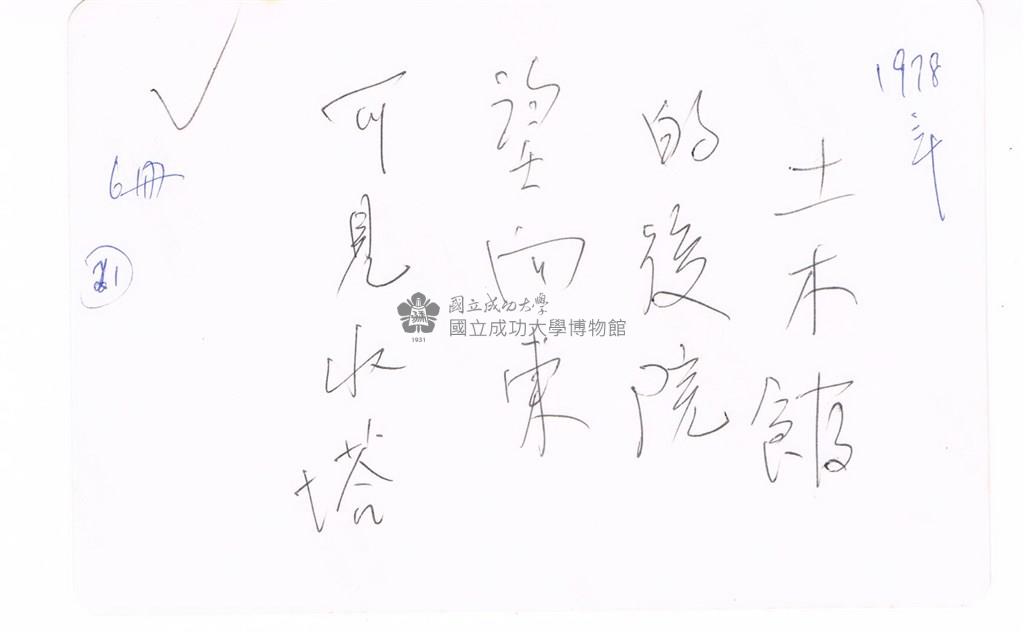 1978年
土木館
的後院
望向東
可見水塔
6冊
國立成功大學
國立成功大學博物館
1931